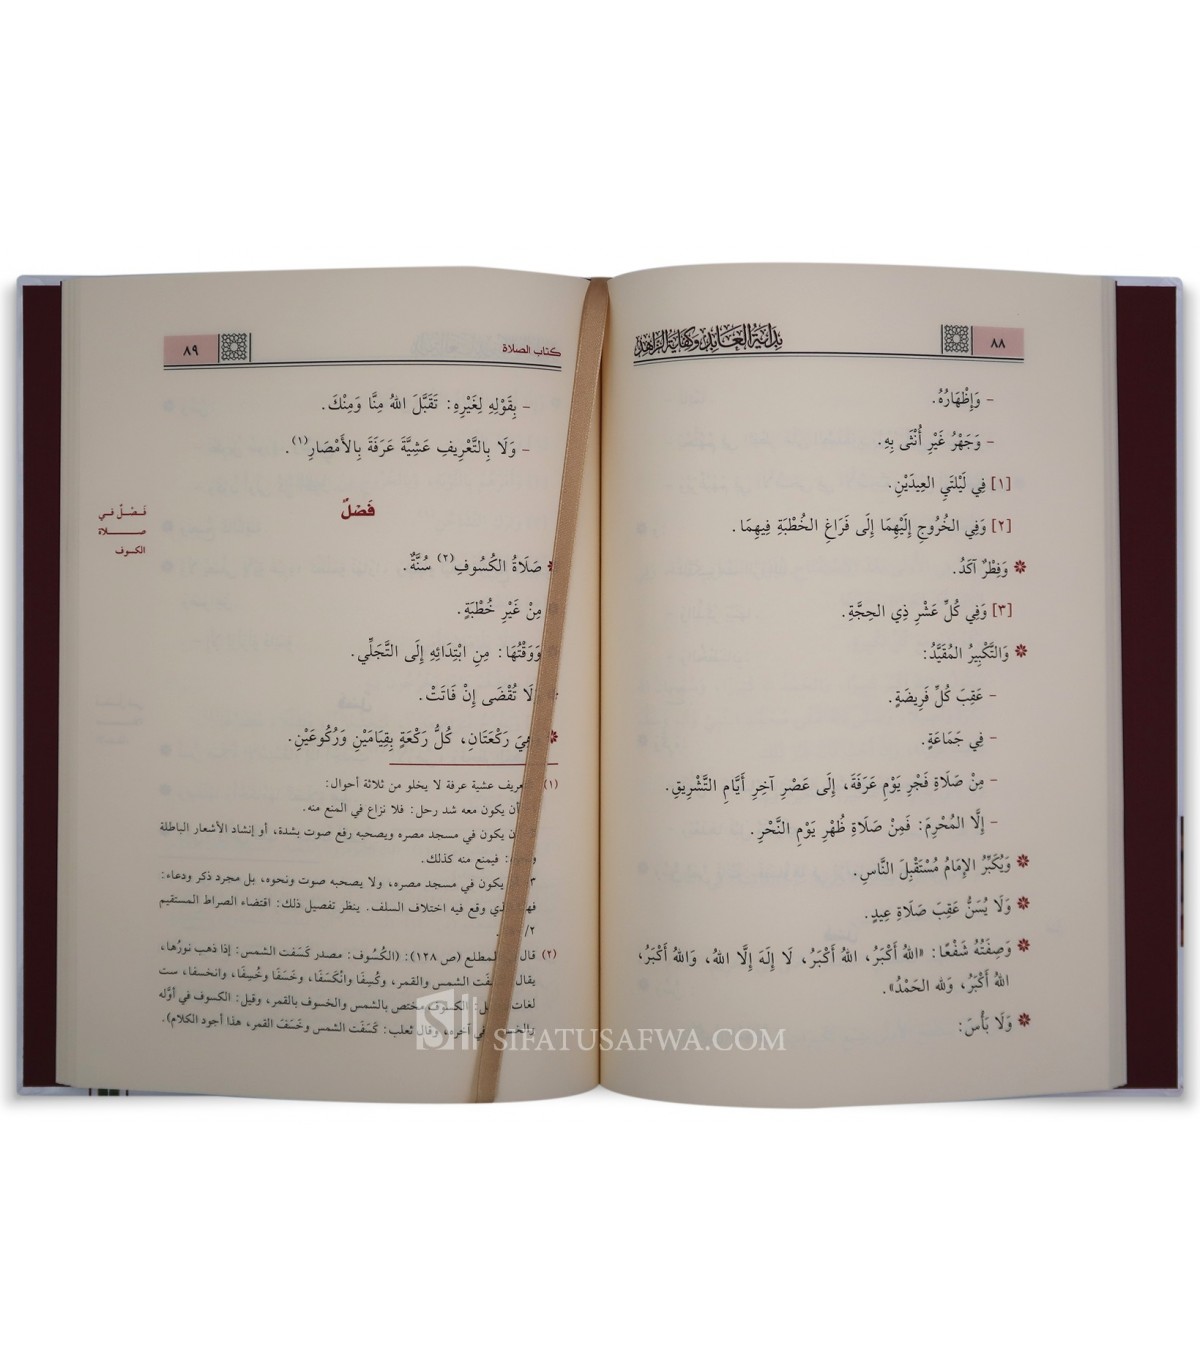 ٨٨
بداية العابد وكفاية الزاهد
- وَإِظْهَارُهُ.
- وَجَهْرُ غَيْرِ أُنْثَى بِهِ.
[١] فِي لَيْلَتَيِ العِيدَيْنِ.
[٢] وَفِي الخُرُوجِ إِلَيْهِمَا إِلَى فَرَاغِ الخُطْبَةِ فِيهِمَا.
وَفِطْرٌ آكَدُ.
[٣] وَفِي كُلِّ عَشْرِ ذِي الحِجَّةِ.
وَالتَّكْبِيرُ المُقَيَّدُ:
- عَقِبَ كُلِّ فَرِيضَةٍ.
- فِي جَمَاعَةٍ.
- مِنْ صَلَاةِ فَجْرِ يَوْمِ عَرَفَةَ، إِلَى عَصْرِ آخِرِ أَيَّامِ التَّشْرِيقِ.
- إِلَّا المُحْرِمَ: فَمِنْ صَلَاةِ ظُهْرِ يَوْمِ النَّحْرِ.
وَيُكَبِّرُ الإِمَامُ مُسْتَقْبِلَ النَّاسِ.
وَلَا يُسَنُّ عَقِبَ صَلَاةِ عِيدٍ.
وَصِفَتُهُ شَفْعًا: «اللهُ أَكْبَرُ، اللهُ أَكْبَرُ، لَا إِلَهَ إِلَّا اللهُ، وَاللهُ أَكْبَرُ،
اللهُ أَكْبَرُ، وَلله الحَمْدُ».
وَلَا بَأْسَ:
كتاب الصلاة
٨٩
- بِقَوْلِهِ لِغَيْرِهِ: تَقَبَّلَ اللهُ مِنَّا وَمِنْكَ.
- وَلَا بِالتَّعْرِيفِ عَشِيَّةَ عَرَفَةَ بِالأَمْصَارِ(١).
فَصْلٌ
فَصْلٌ في
صلاة
الكسوف
صَلَاةُ الكُسُوفِ(٢) سُنَّةٌ.
مِنْ غَيْرِ خُطْبَةٍ.
وَوَقْتُهَا: مِنِ ابْتِدَائِهِ إِلَى التَّجَلِّي.
لَا تُقْضَى إِنْ فَاتَتْ.
وَهِيَ رَكْعَتَانِ، كُلُّ رَكْعَةٍ بِقِيَامَيْنِ وَرُكُوعَيْنِ.
(١) عشية عرفة لا يخلو من ثلاثة أحوال:
أن يكون معه شد رحل: فلا نزاع في المنع منه.
يكون في مسجد مصره ويصحبه رفع صوت بشدة، أو إنشاد الأشعار الباطلة
فيمنع منه كذلك.
٣ يكون في مسجد مصره، ولا يصحبه صوت ونحوه، بل مجرد ذكر ودعاء:
وقع فيه اختلاف السلف. ينظر تفصيل ذلك: اقتضاء الصراط المستقيم
٢/
(٢) قال المطلع (ص ١٢٨): (الكُسُوف: مصدر كَسَفت الشمس: إذا ذهب نورُها،
يقال الشمس والقمر، وكُسِفَا وانْكَسَفَا، وخَسَفَا وخُسِفَا، وانخسفا، ست
لغات الكسوف مختص بالشمس والخسوف بالقمر، وقيل: الكسوف في أوَّله
في آخره، وقال ثعلب: كَسَفَت الشمس وخَسَفَ القمر، هذا أجود الكلام).
SIFATUSAFWA.COM